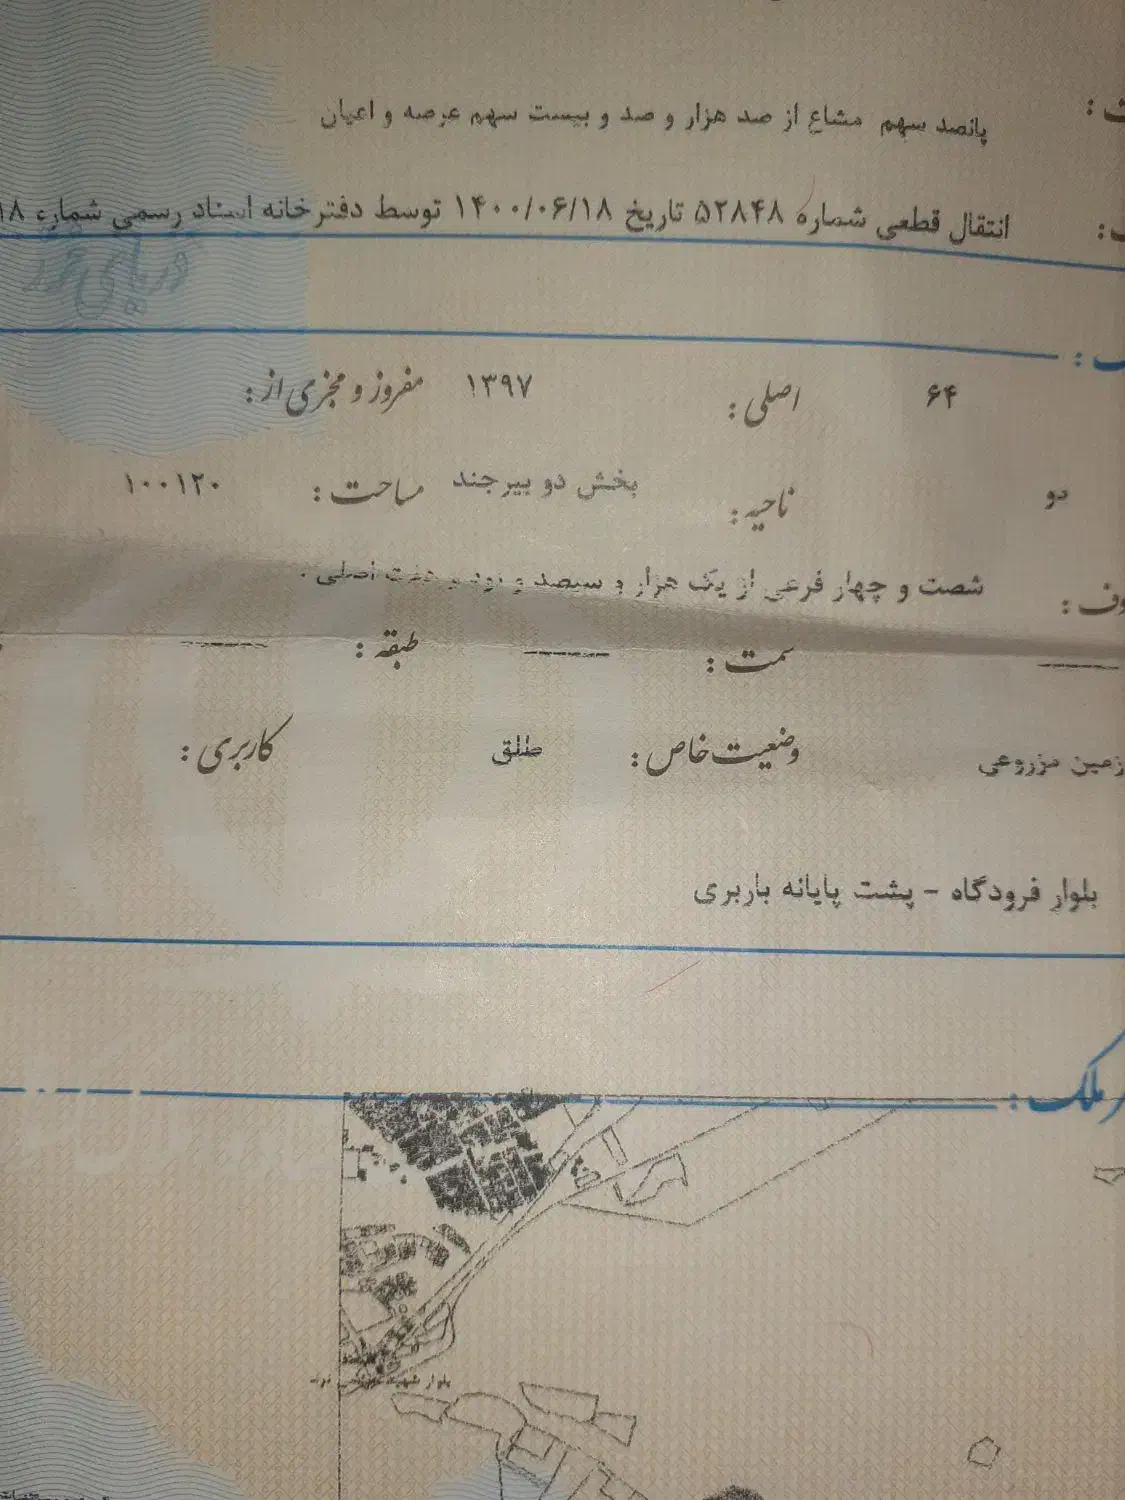 پانصد سهم مشاع از صد هزار و صد و بیست سهم عرصه و اعیان
انتقال قطعی شماره ۵۲۸۴۸ تاریخ ۱۴۰۰/۰۶/۱۸ توسط دفترخانه اسناد رسمی شماره ۱۸
۶۴ اصلی: ۱۳۹۷ مفروز و مجزی از:
دو ناحیه: بخش دو بیرجند مساحت: ۱۰۰۱۲۰
شصت و چهار فرعی از یک هزار و سیصد و نود و هفت اصلی .
سمت: طبقه:
زمین مزروعی وضعیت خاص: طلق کاربری:
بلوار فرودگاه - پشت پایانه باربری
ملک: